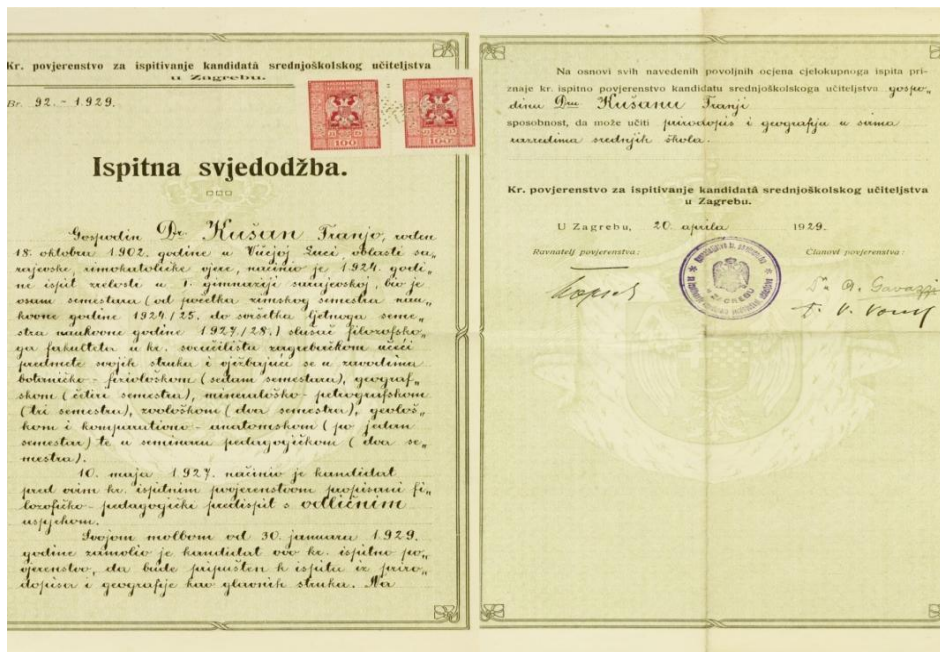 Kr. povjerenstvo za ispitivanje kandidatâ srednjoškolskog učiteljstva
u Zagrebu.
Br. 92. - 1929.
100
100
Ispitna svjedodžba.
Gospodin Dr. Kušan Franjo, rođen
18. oktobra 1902. godine u Vučjoj Luci, oblasti sa„
rajevske, rimokatoličke vjere, načinio je 1924. godi„
ne ispit zrelosti u I. gimnaziji sarajevskoj, bio je
osam semestara (od početka zimskog semestra nau„
kovne godine 1924/25. do svršetka ljetnoga seme„
stra naukovne godine 1927/28.) slušač filozofsko„
ga fakulteta u kr. sveučilištu zagrebačkom učeći
predmete svojih struka i vježbajući se u zavodima
botaničko - fiziološkom (sedam semestara), geograf„
skom (četiri semestra), mineraloško - petrografskom
(tri semestra), zoološkom (dva semestra), geološ„
kom i komparativno - anatomskom (po jedan
semestar) te u seminaru pedagogičkom (dva se„
mestra).
10. maja 1927. načinio je kandidat
pred ovim kr. ispitnim povjerenstvom propisani fi„
lozofičko - pedagogički predispit s odličnim
uspjehom.
Svojom molbom od 30. januara 1929.
godine zamolio je kandidat ovo kr. ispitno po„
vjerenstvo, da bude pripušten k ispitu iz priro„
dopisa i geografije kao glavnih struka. Na
Na osnovi svih navedenih povoljnih ocjena cjelokupnoga ispita pri-
znaje kr. ispitno povjerenstvo kandidatu srednjoškolskoga učiteljstva gospo„
dinu Dru Kušanu Franji
sposobnost, da može učiti prirodopis i geografiju u svima
razredima srednjih škola.
Kr. povjerenstvo za ispitivanje kandidatâ srednjoškolskog učiteljstva
u Zagrebu.
U Zagrebu, 20. aprila 1929.
Ravnatelj povjerenstva:
Članovi povjerenstva:
Dr. A. Gavazzi